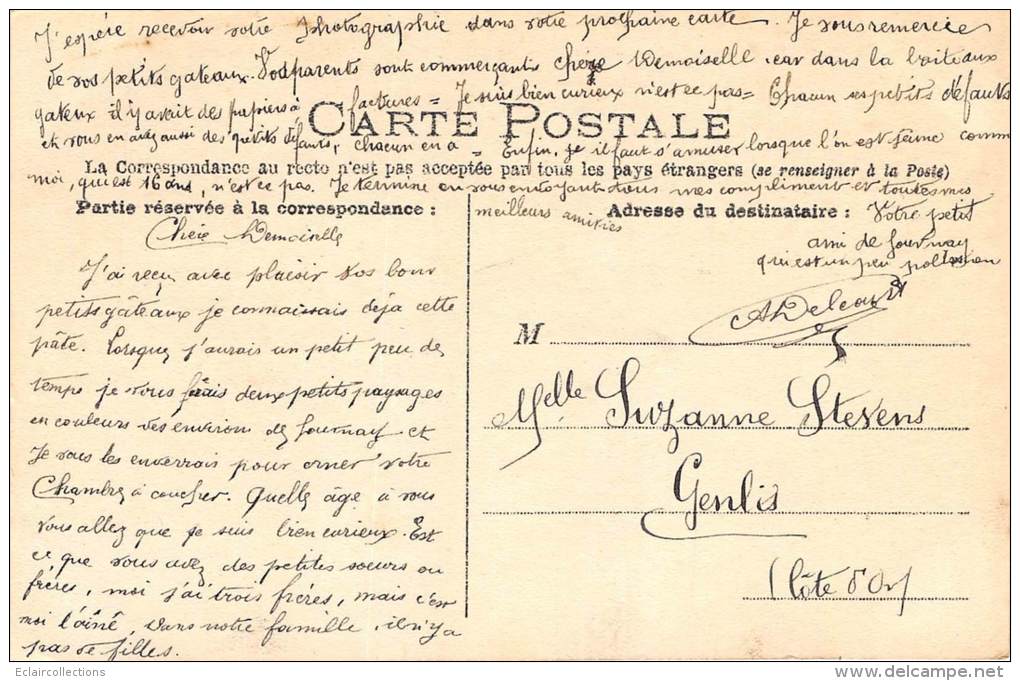 Chère Demoiselle
J'ai reçu avec plaisir vos bour
petits gâteaux je connaissais déja cette
pâte. Lorsque j'aurais un petit peu de
temps je vous ferais deux petits paysages
en couleurs des environs de Gournay et
Je vous les enverrais pour orner votre
Chambre à coucher. Quelle âge à vous
vous allez que je suis bien curieux. Est
ce que vous avez des petites soeurs ou
frères, moi j'ai trois frères, mais c'est
moi l'aîné, dans notre famille il n'y a
pas de filles.
J'espére recevoir votre photographie dans votre prochaine carte. Je vous remercie
de vos petits gateaux. Vos parents sont commerçants chère Demoiselle car dans la boite aux
gateux il y avait des papiers à factures = Je suis bien curieux n'est ce pas = Chacun ses petits défauts
CARTE POSTALE
et vous en avez aussi des petits défauts, chacun en a = Enfin, je il faut s'amuser lorsque l'on est jeune comm
La Correspondance au recto n'est pas acceptée par tous les pays étrangers (se renseigner à la Poste)
moi, qui est 16 ans, n'est ce pas. Je termine en vous envoyant tous mes compliment et toutes mes
meilleurs amitiés
Partie réservée à la correspondance :
Adresse du destinataire :
Votre petit
ami de Gournay
qui est un peu polisson
A Delcourt
M
Melle Suzanne Stevens
Genlis
(Côte d'Or)
Eclaircollections
www.delcampe.net